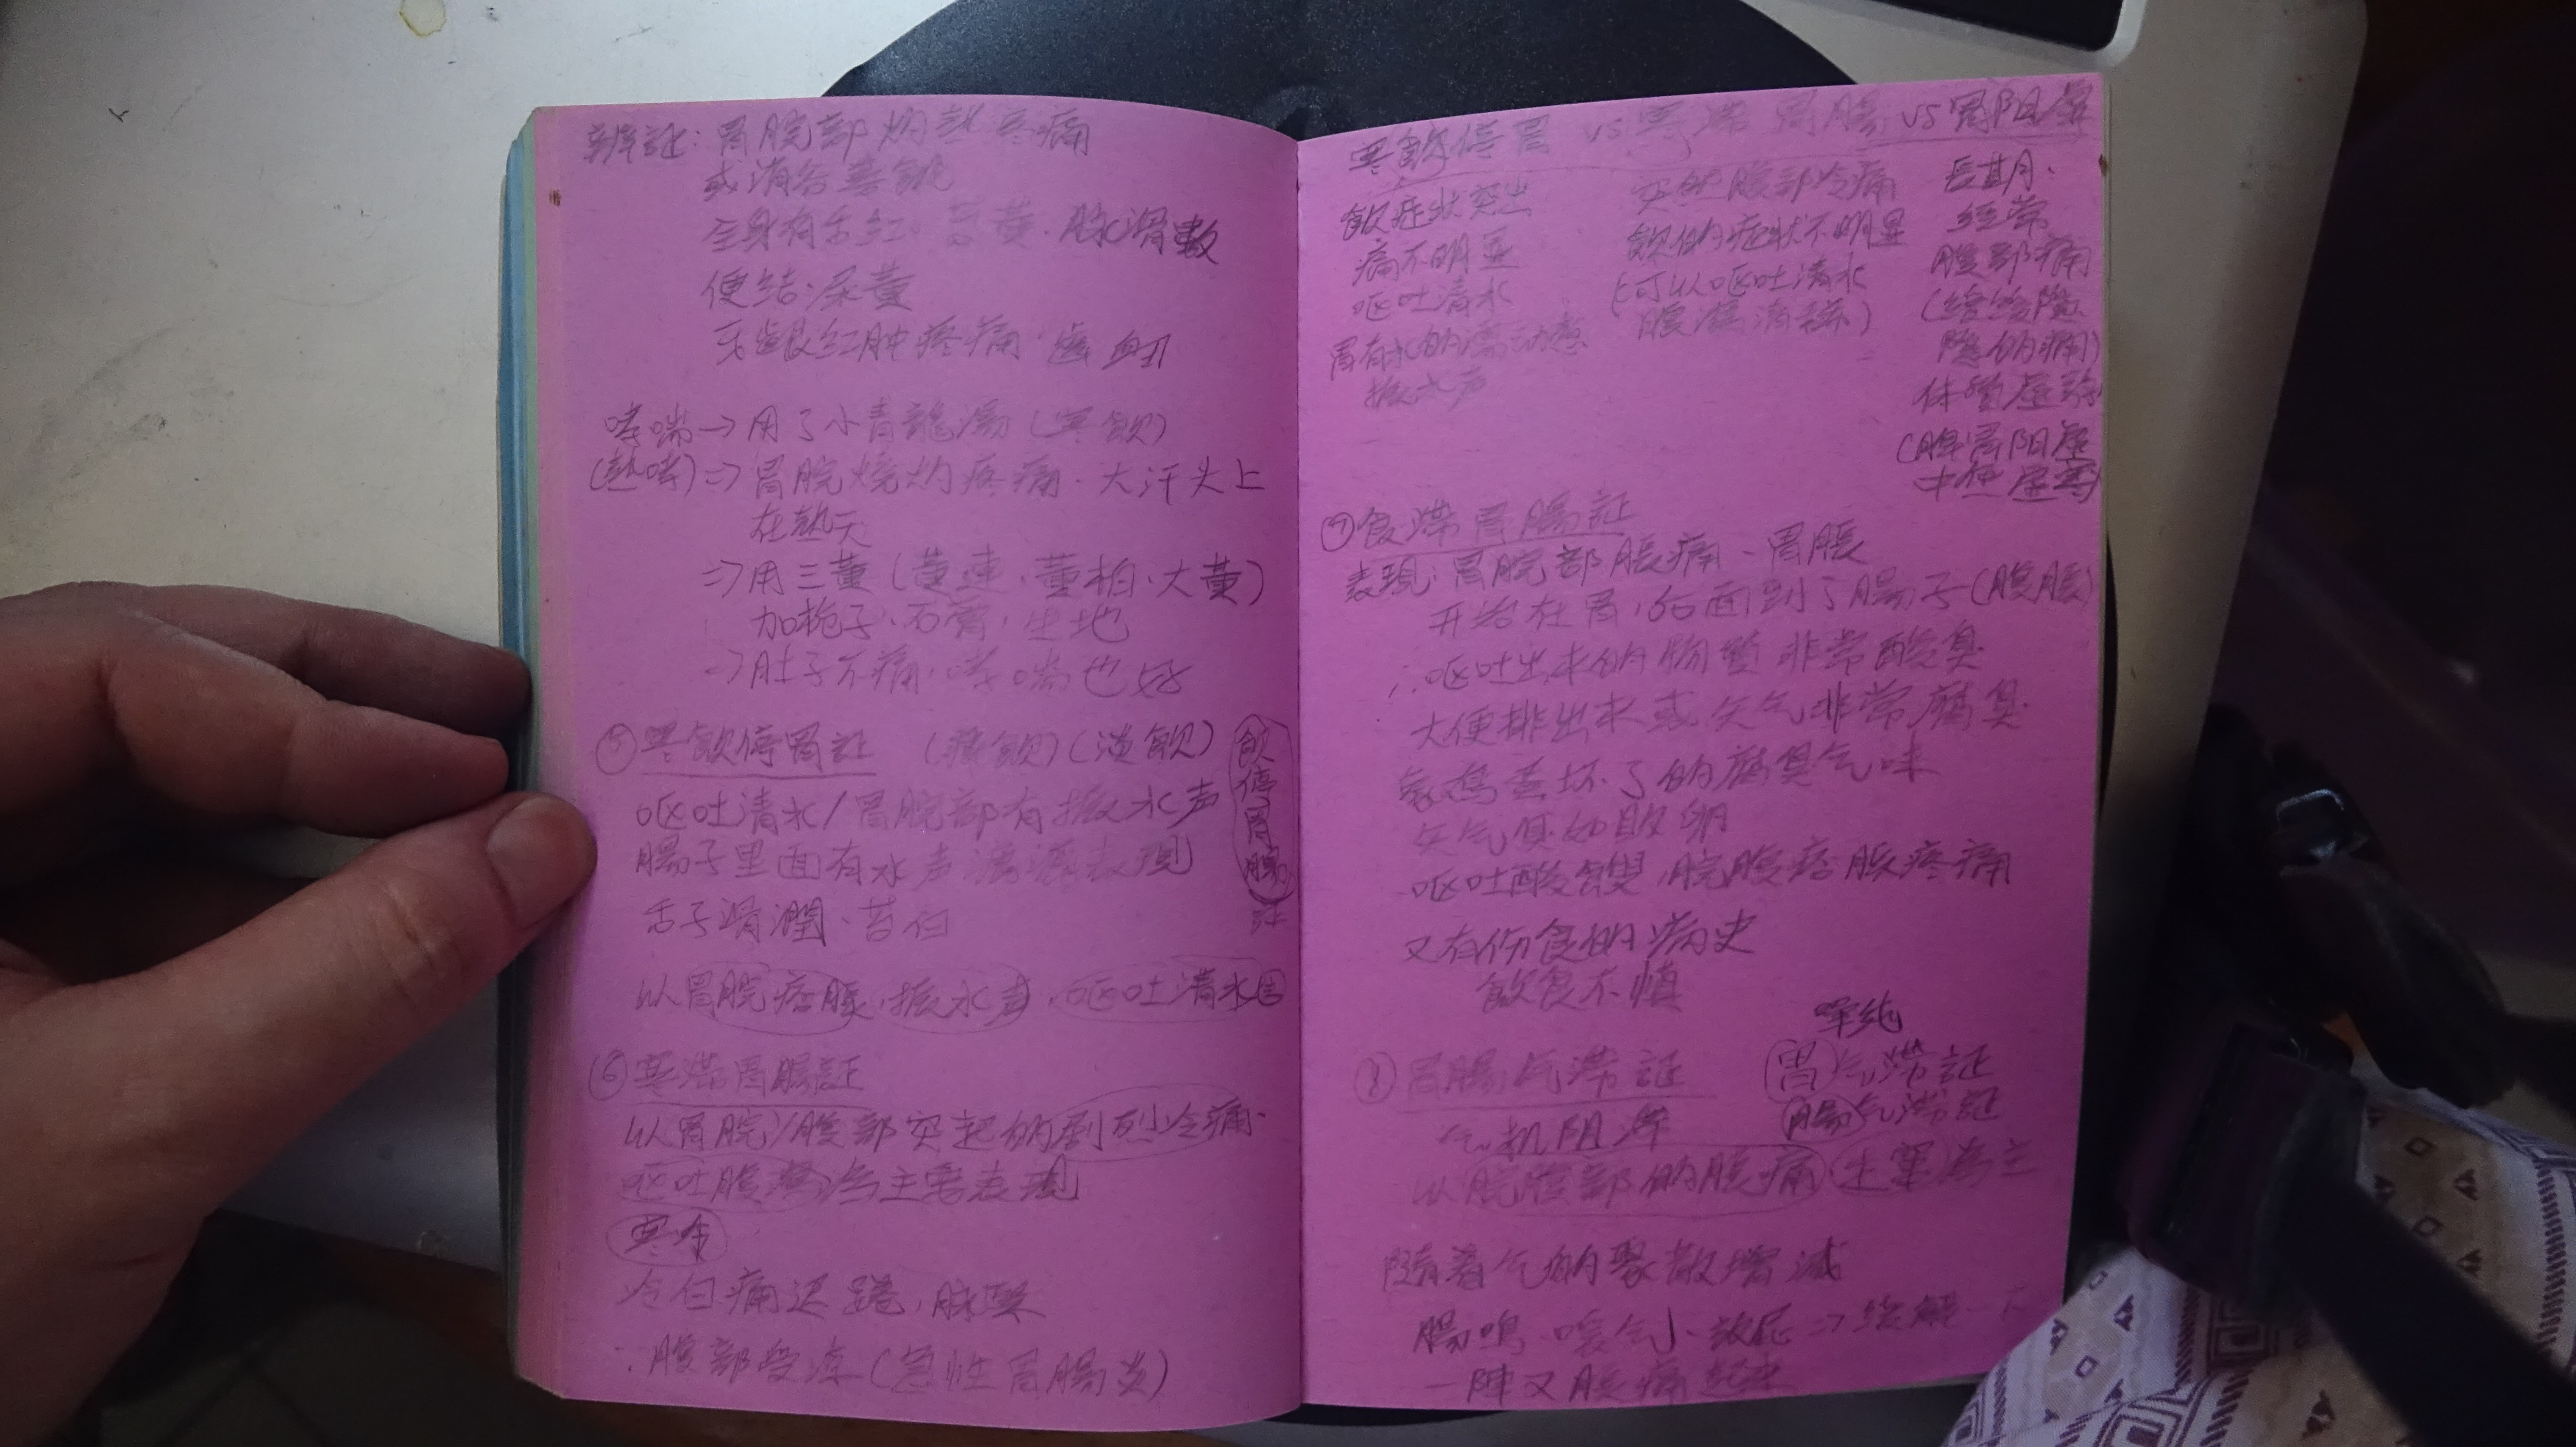 辨証：胃脘部灼熱疼痛
或消谷善飢
全身有舌紅、苔黄、脉滑數
便结、尿黄
牙齦红肿疼痛、齒衄
哮喘→用了小青龍湯（寒飲）
（熱哮）⇒胃脘烧灼疼痛、大汗头上
在熱天
⇒用三黄（黄連、黄柏、大黄）
加栀子、石膏、生地
→肚子不痛、哮喘也好
⑤寒飲停胃証 （痰飲）（淡飲）
飲停胃腸証
呕吐清水/胃脘部有振水声
腸子里面有水声漉漉表現
舌子滑潤、苔白
以胃脘痞脹、振水声、呕吐清水
⑥寒滞胃腸証
以胃脘/腹部突起的剧烈冷痛、
呕吐腹瀉為主要表現
冷白痛迟踡、脉緊
∵腹部受凉（急性胃腸炎）
寒飲停胃 vs 寒滞胃腸 vs 胃阳虚
飲症状突出
痛不明显
呕吐清水
胃有水的漂动感
振水声
突然腹部冷痛
飲的症状不明显
（可以呕吐清水
腹瀉清稀）
長期、
经常
腹部痛
（绵绵隐
隐的痛）
体質虚弱
（脾胃阳虚
中焦虚寒
⑦食滞胃腸証
表現：胃脘部脹痛、胃脹
开始在胃，后面到了腸子（腹脹）
∴呕吐出来的物質非常酸臭
大便排出来或矢气非常腐臭
象鸡蛋坏了的腐臭气味
矢气臭如敗卵
呕吐酸餿，脘腹痞脹疼痛
又有伤食的病史
飲食不慎
⑧胃腸气滞証
單纯
胃气滞証
腸气滞証
气机阻滞
以脘腹部的脹痛走窜為主
隨着气的聚散增减
腸鳴、嗳气、放屁⇒缓解一下
一陣又脹痛起来